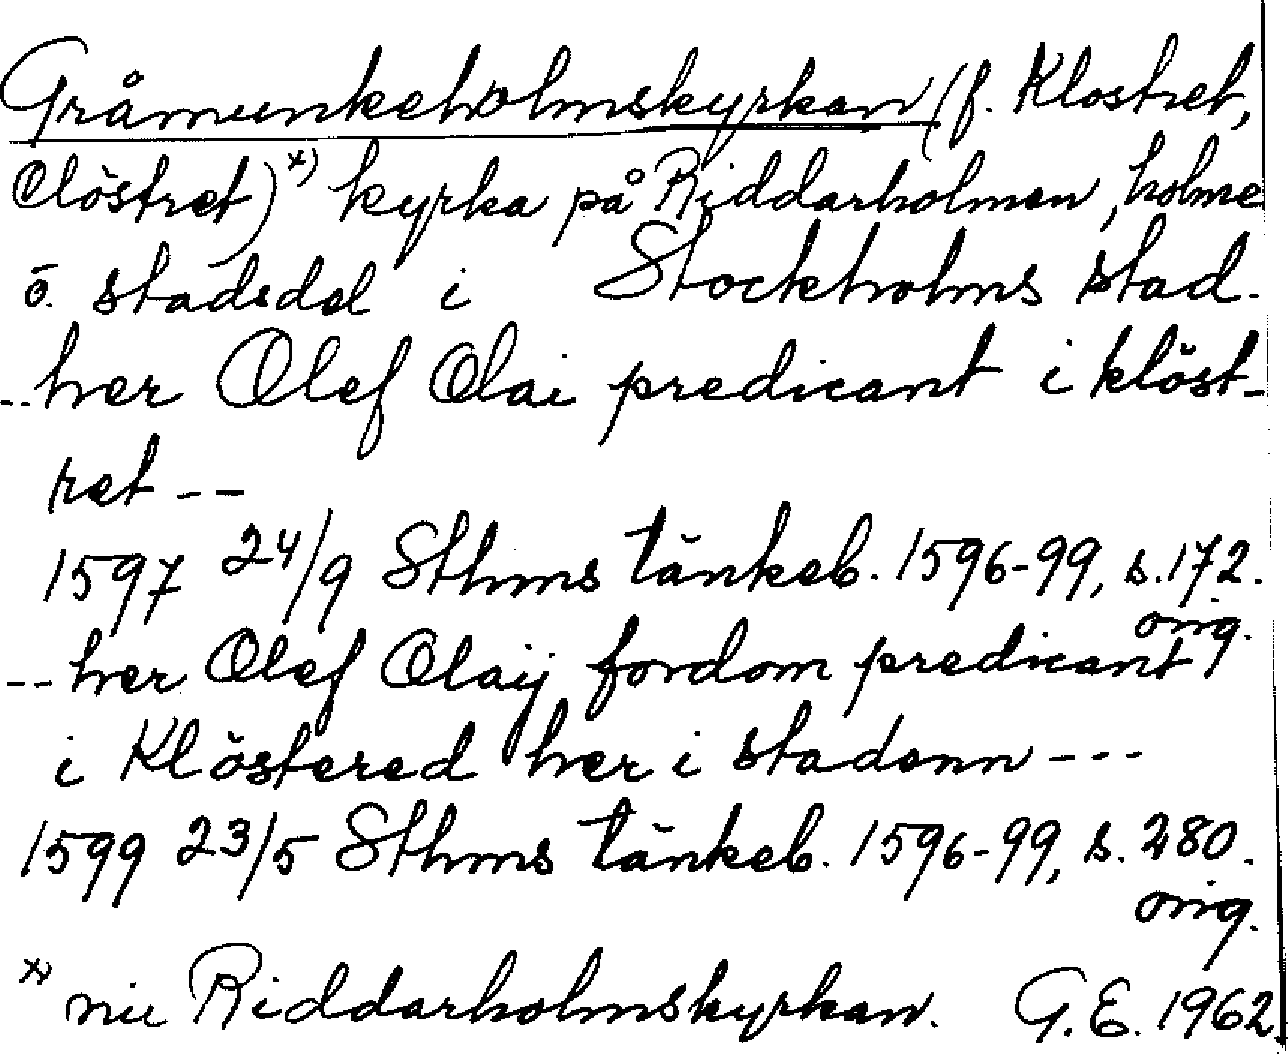 Gråmunkeholmskyrkan (f. Klostret,
Clöstret)x) kyrka på Riddarholmen, holme
ö. stadsdel i Stockholms stad.
--her Olef Olai predicant i klöst-
ret --
1597 24/9 Sthms tänkeb. 1596-99, s.172.
orig.
--her Olef Olaij fordom predicant
i Klöstered her i stadenn ---
1599 23/5 Sthms tänkeb. 1596-99, s. 280.
orig.
x) nu Riddarholmskyrkan. G.E. 1962